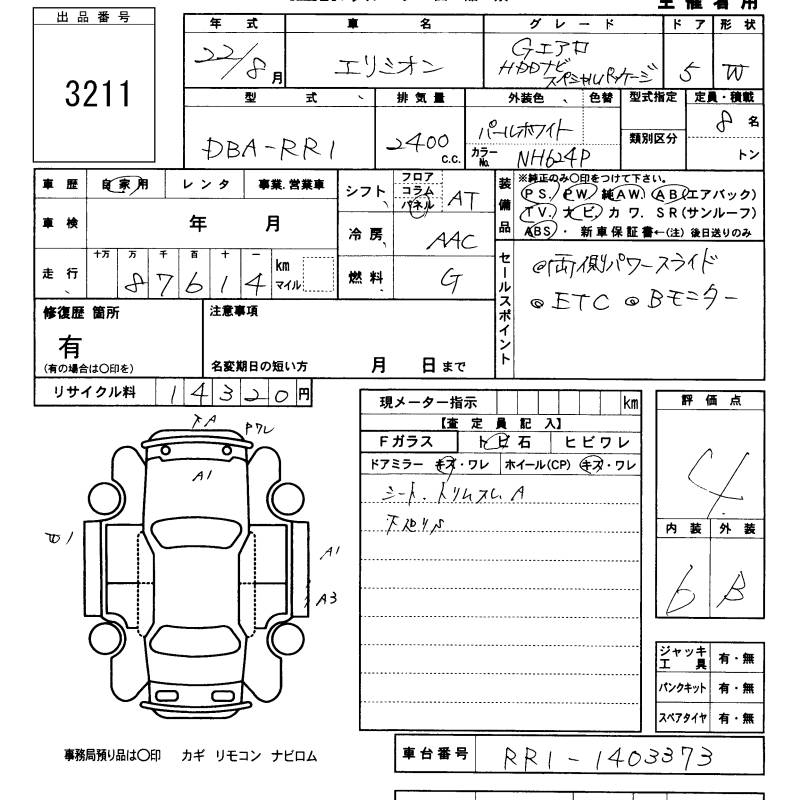 出品番号
3211
年式 車名 グレード ドア 形状
22/8月 エリシオン Gエアロ HDDナビ スペシャルパッケージ 5 W
型式 排気量 外装色 色替 型式指定 定員・積載
DBA-RR1 2400 c.c. パールホワイト 類別区分 8名
カラーNo. NH624P トン
車歴 自家用 レンタ 事業.営業車 シフト フロア コラム パネル AT
装備品 ※純正のみ○印をつけて下さい。
PS. PW. 純AW. AB(エアバック)
TV. ナビ. カワ. SR(サンルーフ)
ABS・ 新車保証書←(注)後日送りのみ
車検 年 月 冷房 AAC
走行 十万 万 千 百 十 一
87614 km マイル 燃料 G
セールスポイント
◎両側パワースライド
◎ETC ◎Bモニター
修復歴 箇所 注意事項
有
(有の場合は○印を) 名変期日の短い方 月 日まで
リサイクル料 14320円
現メーター指示 km
【査定員記入】
Fガラス トビ石 ヒビワレ
ドアミラー キズ・ワレ ホイール(CP) キズ・ワレ
シート.トリムスレA
評価点
4
内装 外装
6 B
下A
Pワレ
A1
A1
A3
ジャッキ工具 有・無
パンクキット 有・無
スペアタイヤ 有・無
事務局預り品は○印 カギ リモコン ナビロム
車台番号 RR1-1403373